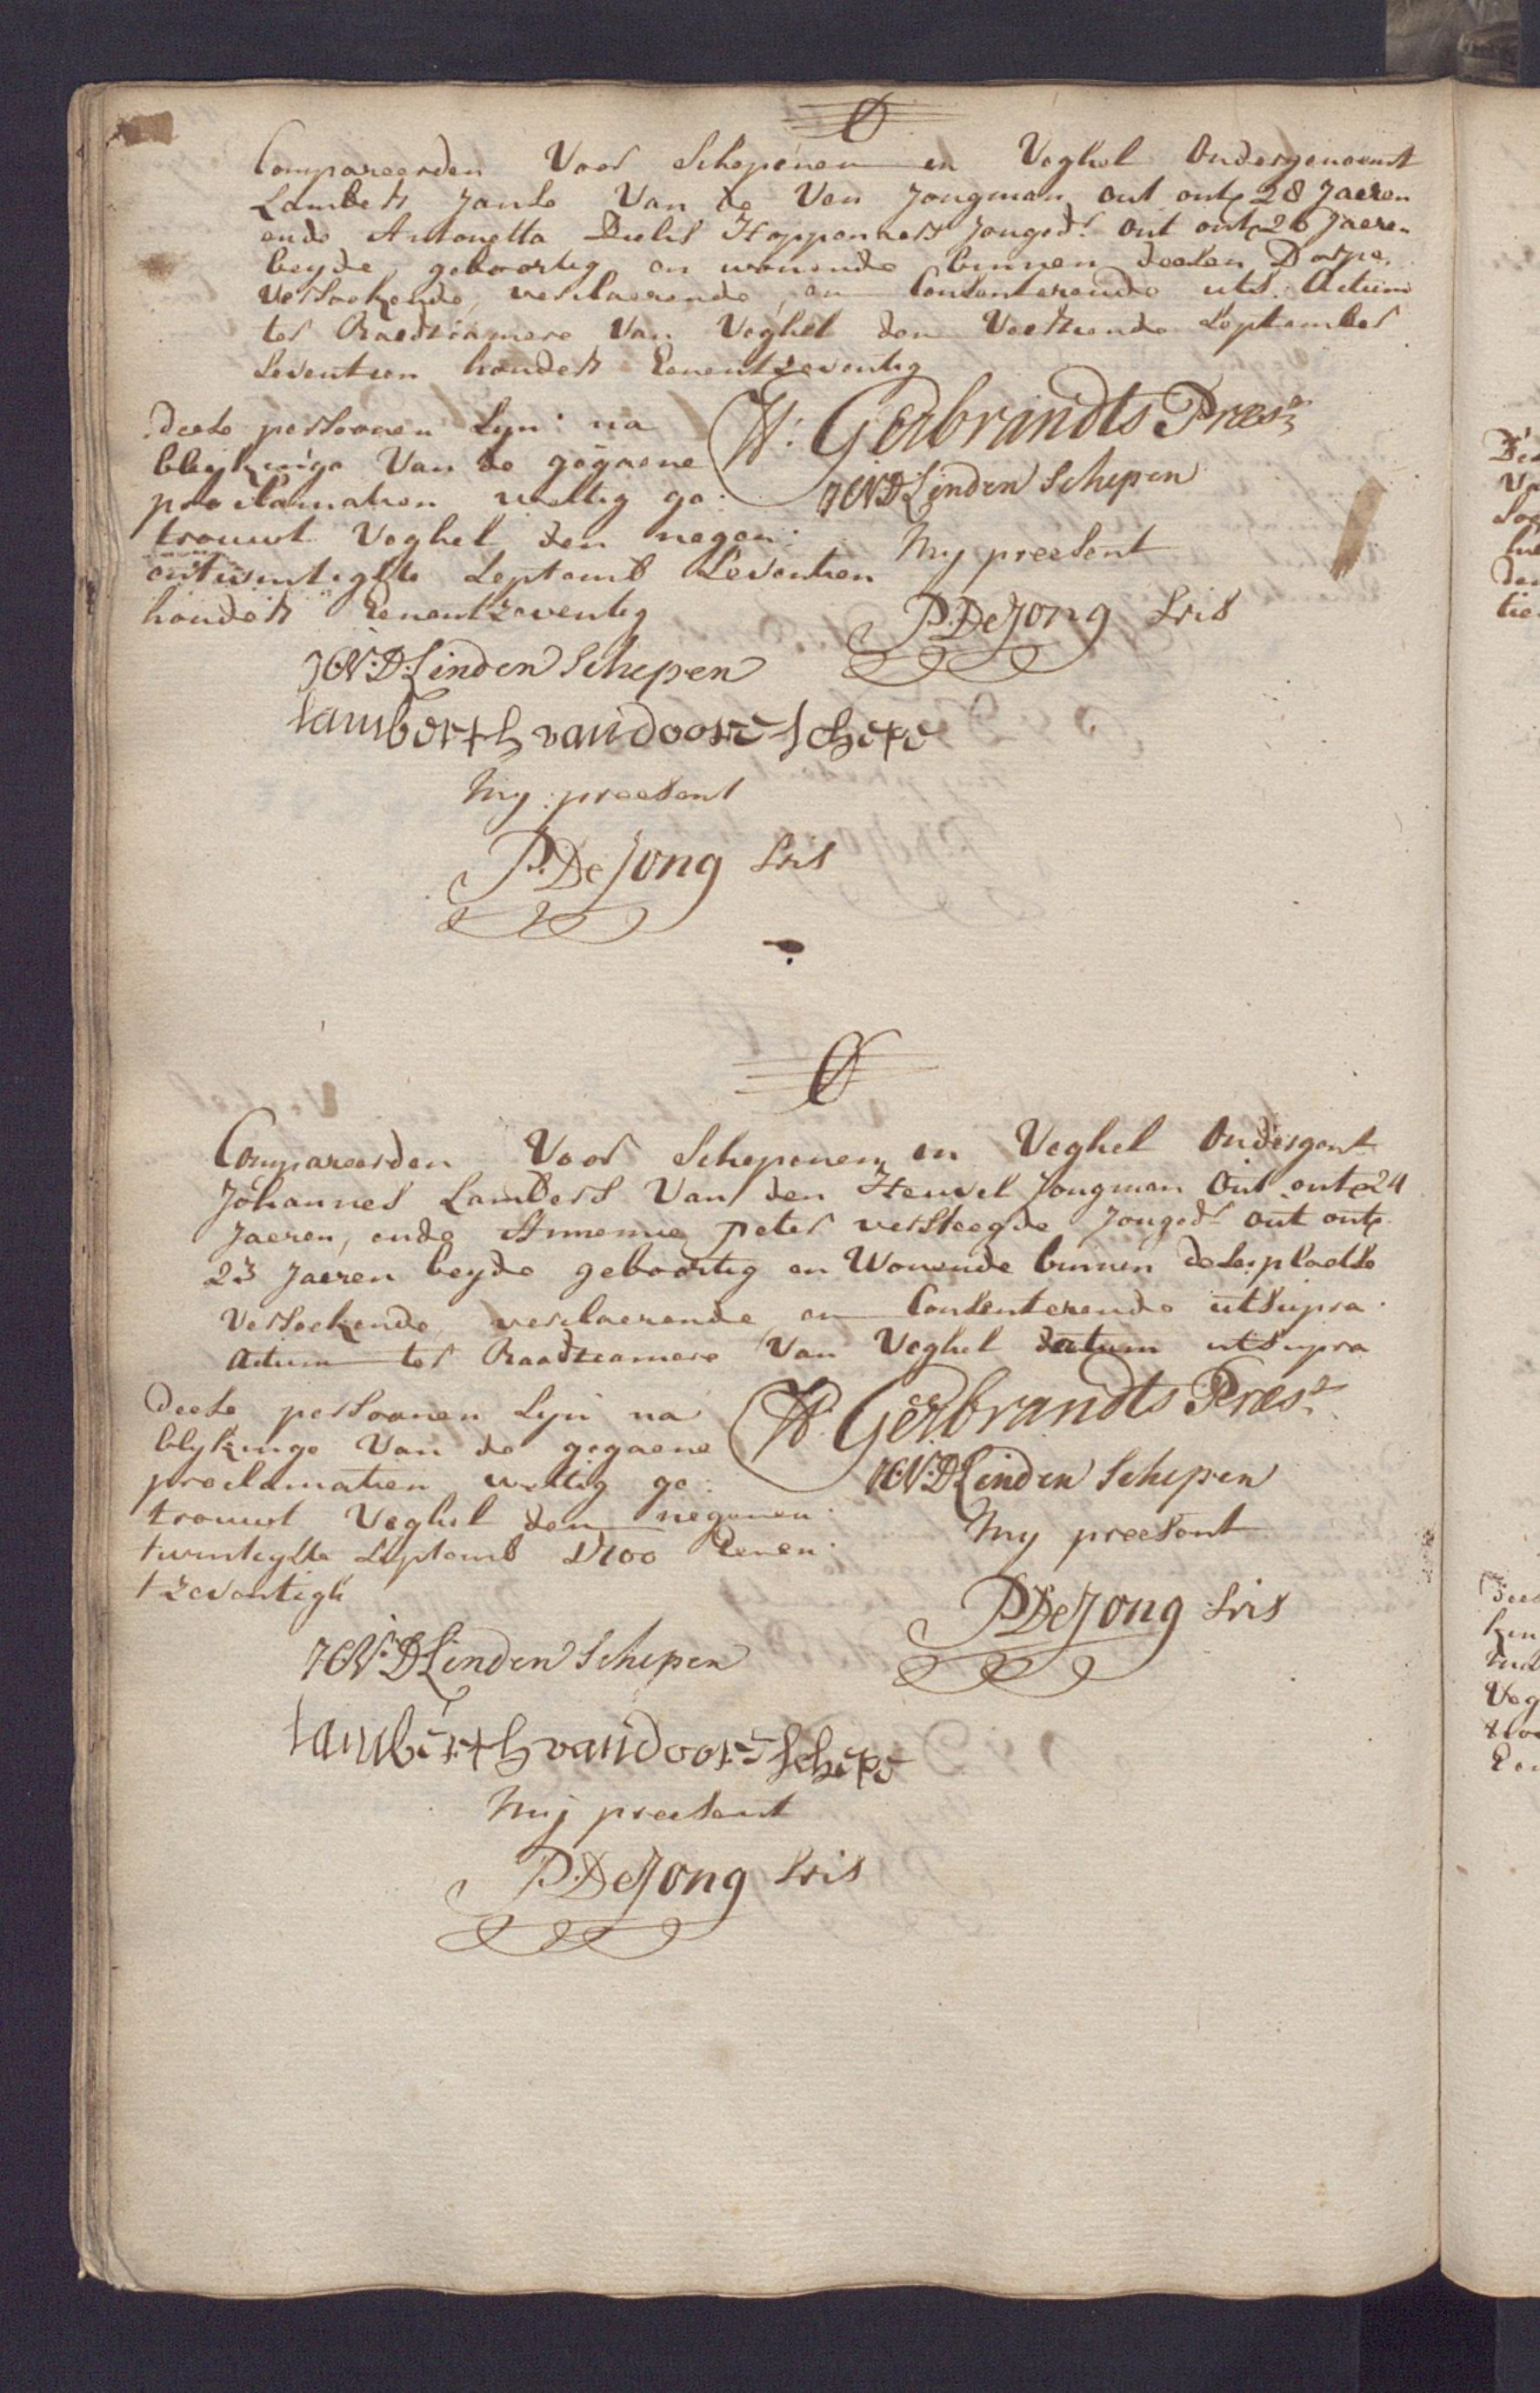 Compareerden Voor Schepenen en Veghel Ondergenoemt
Lambert Janse Van de Ven Jongman out ontr 28 Jaeren
ende Antonetta Dielis Hoppenaers Jongedr. out ontr 26 Jaeren
beyde geboortig en wonende binnen deesen Dorpe,
Versoekende, verclaerende, en Consenterende uts. Actum
ter Raedtcamere Van Veghel den Veertiende September
Seventien hondert Eenentzeventig
deese persoonen syn na
blykinge Van de gegaene
proclamatien wettig ge:
trouwt Veghel den negen:
entwintigste Septemb Seventien
hondert Eenentzeventig
W: Gerbrandts Præst
JCV:D Linden Schepen
My preesent
P. De Jong Sris
JCV:D:Linden Schepen
lamberth van doore schepe
My: preesent
P. De Jong Sris
Compareerden Voor Schepenen en Veghel Ondergent
Johannes Lambers Van den Heuvel Jongman Out ontr 24
Jaeren, ende Annemie Peter versteegde Jongedr out ontr
23 Jaeren beyde geboortig en Wonende binnen deser plaetse
Versoekende, verclaerende en Consenterende utsupra
Actum ter Raadtcamere Van Veghel datum utsupra
Deese persoonen syn na
blykinge Van de gegaene
proclamatien wettig ge:
trouwt Veghel den negenen
twintigste Septemb 1700 Eenen:
tzeventigh
W. Gerbrandts Præst
JCV:D Linden Schepen
My preesent
P De Jong Sris
JCV:D Linden Schepen
lamberth van doore schepe
Mij preesent
P. De Jong Sris